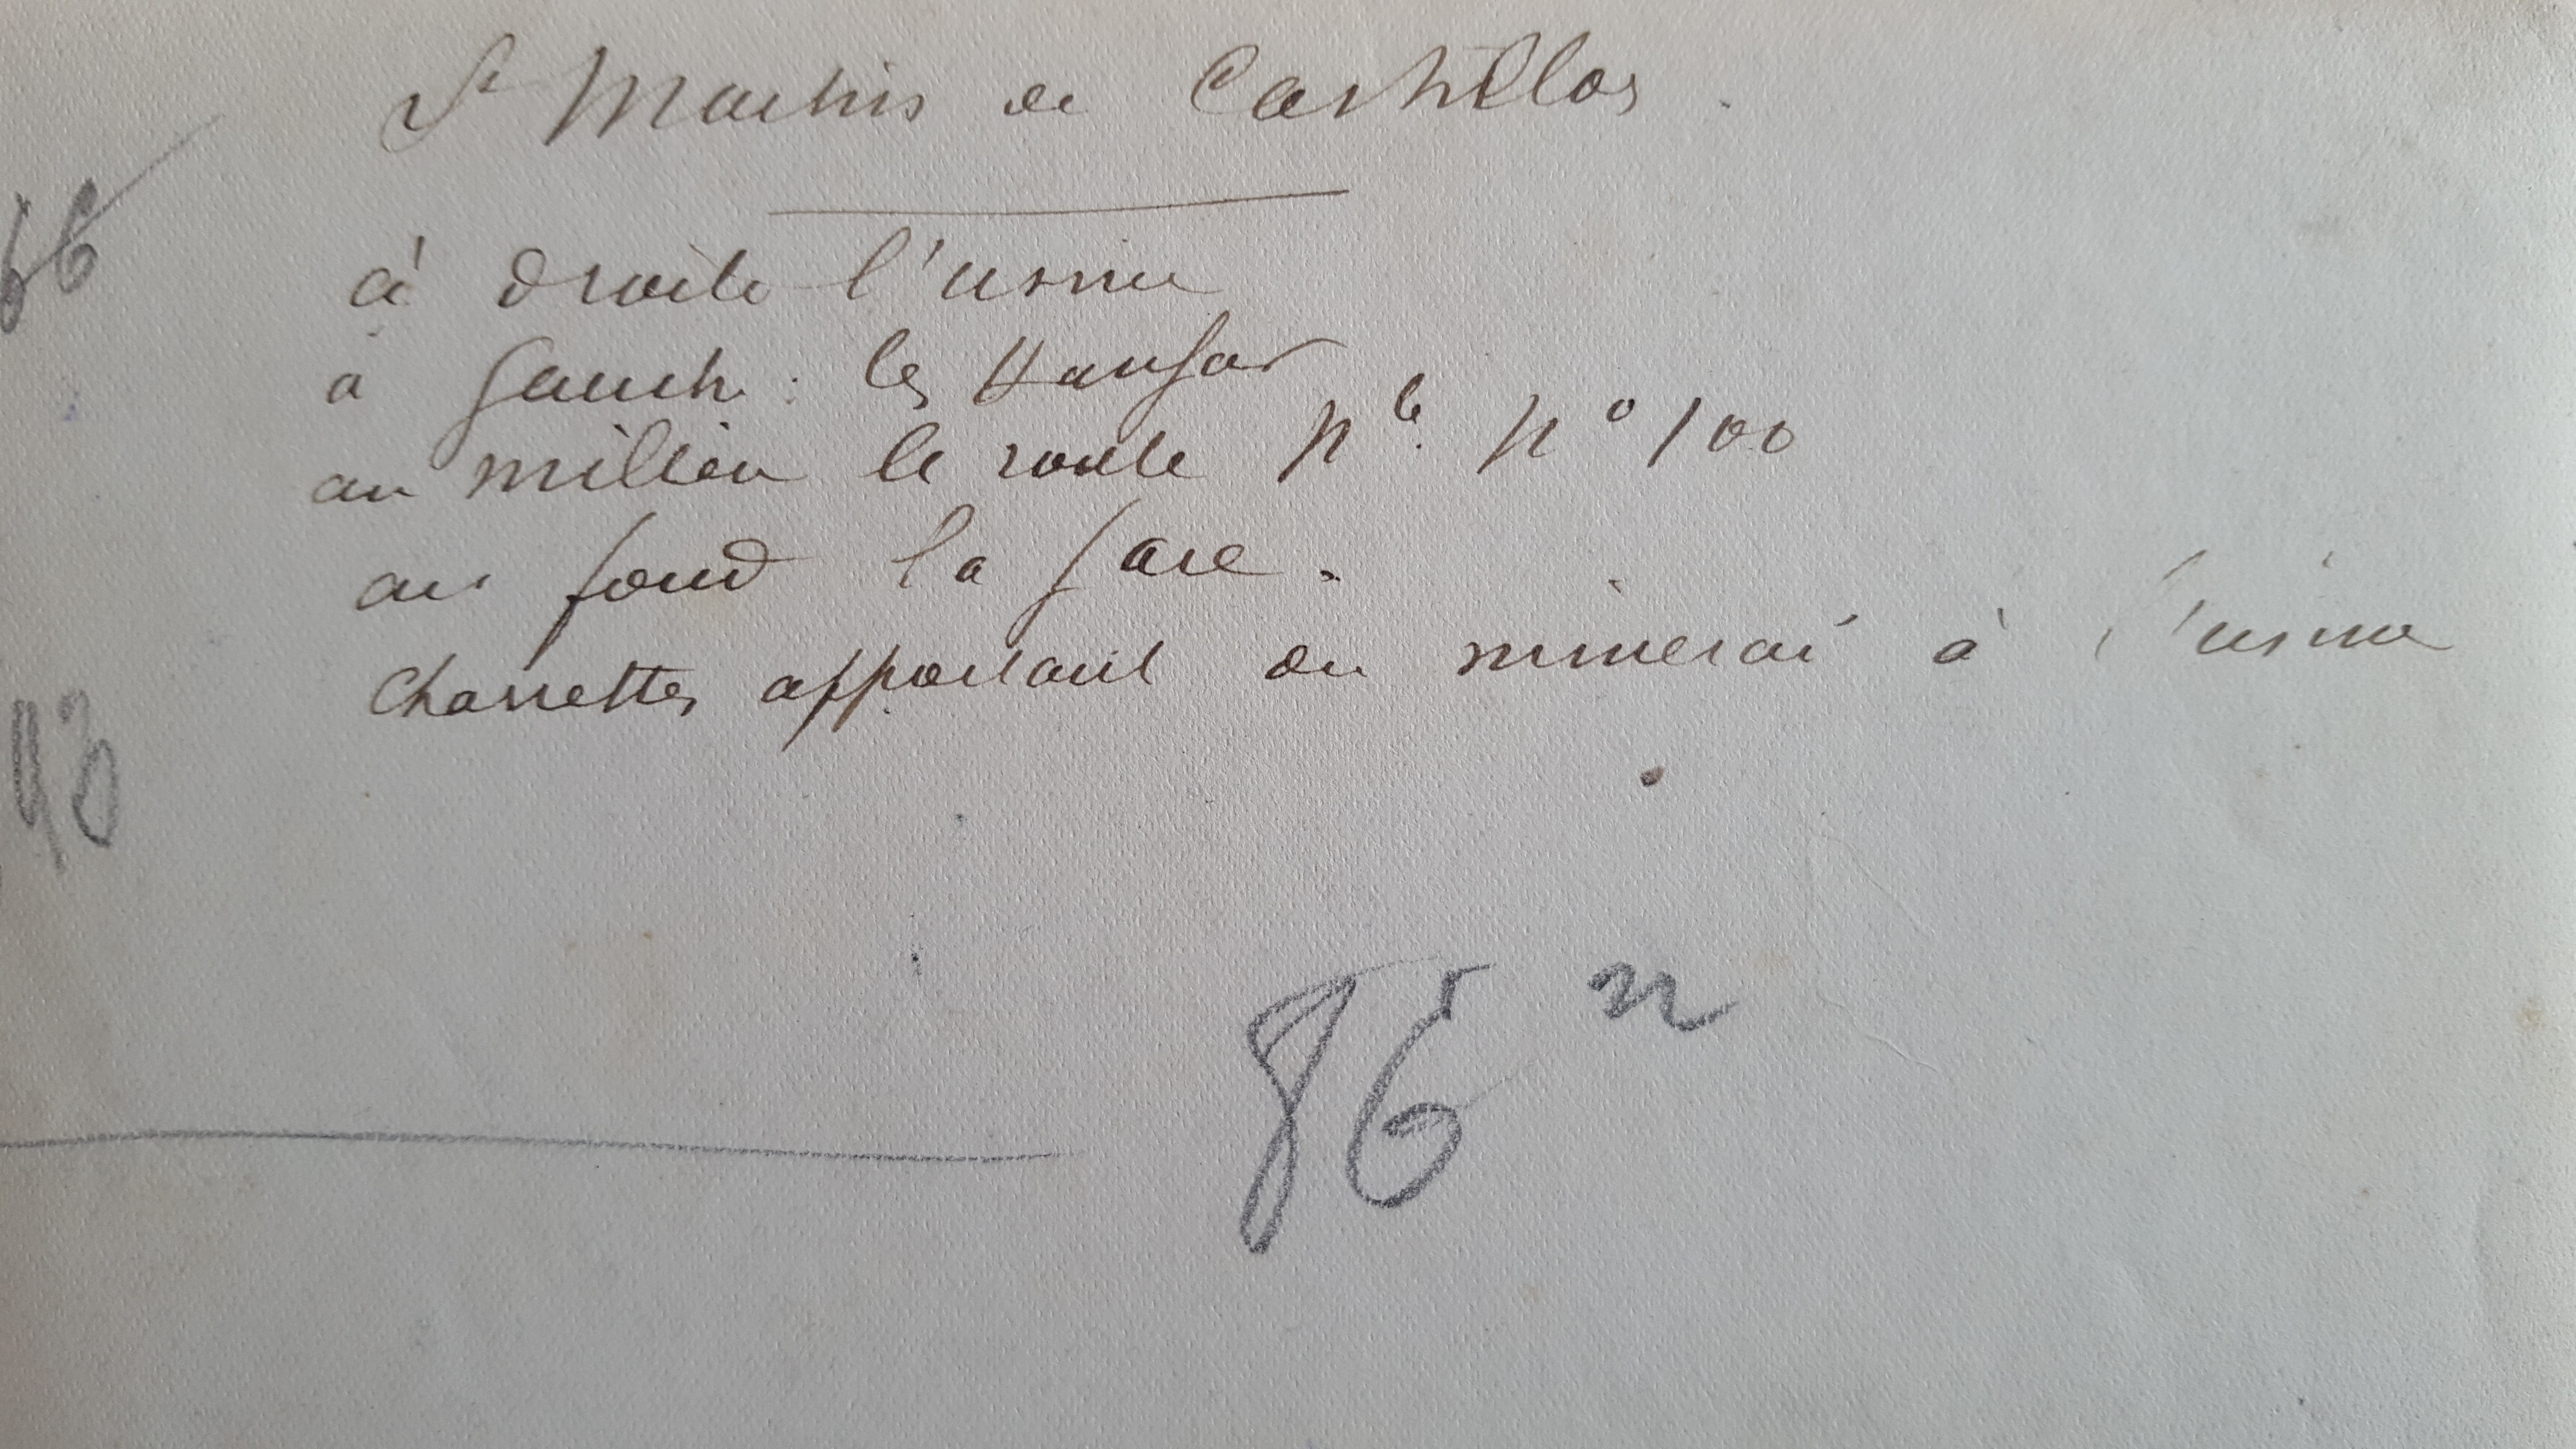 St Martin de Castillon
66
à droite l'usine
a gauche : les Hangar
au milieu la route Nle. N° 100
au fond la gare.
Charrettes apportant du minerai à l'usine
93
86